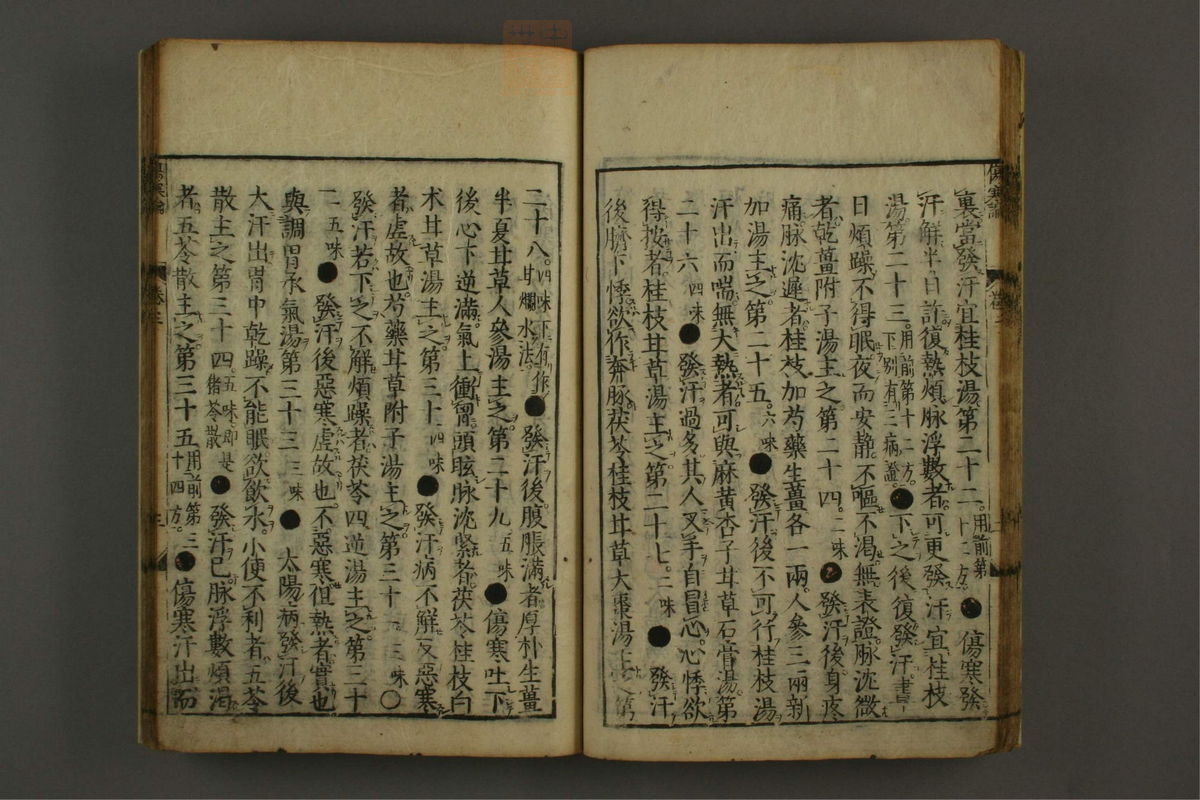 裏當發汗宜桂枝湯第二十二用前第十二方●傷寒發
汗解半日許復熱煩脉浮數者可更發汗宜桂枝
湯第二十三用前第十二方下別有三病證●下之後復發汗晝
日煩躁不得眠夜而安静不嘔不渴無表證脉沈微
者乾薑附子湯主之第二十四二味●發汗後身疼
痛脉沈遲者桂枝加芍藥生薑各一兩人參三兩新
加湯主之第二十五六味●發汗後不可行桂枝湯
汗出而喘無大熱者可與麻黄杏子甘草石膏湯第
二十六四味●發汗過多其人叉手自冒心心悸欲
得按者桂枝甘草湯主之第二十七二味●發汗
後臍下悸欲作奔豚茯苓桂枝甘草大棗湯主之第
二十八四味下有作甘爛水法●發汗後腹脹滿者厚朴生薑
半夏甘草人參湯主之第二十九五味●傷寒吐下
後心下逆滿氣上衝胷頭眩脉沈紧者茯苓桂枝白
术甘草湯主之第三十四味●發汗病不解反惡寒
者虚故也芍藥甘草附子湯主之第三十一三味○
發汗若下之不解煩躁者茯苓四逆湯主之第三十
二五味●發汗後惡寒虚故也不惡寒但熱者實也
與調胃承氣湯第三十三三味●太陽病發汗後
大汗出胃中乾躁不能眠欲飲水小便不利者五苓
散主之第三十四五味即是猪苓散●發汗已脉浮數煩渴
者五苓散主之第三十五用前第三十四方●傷寒汗出而
傷寒論